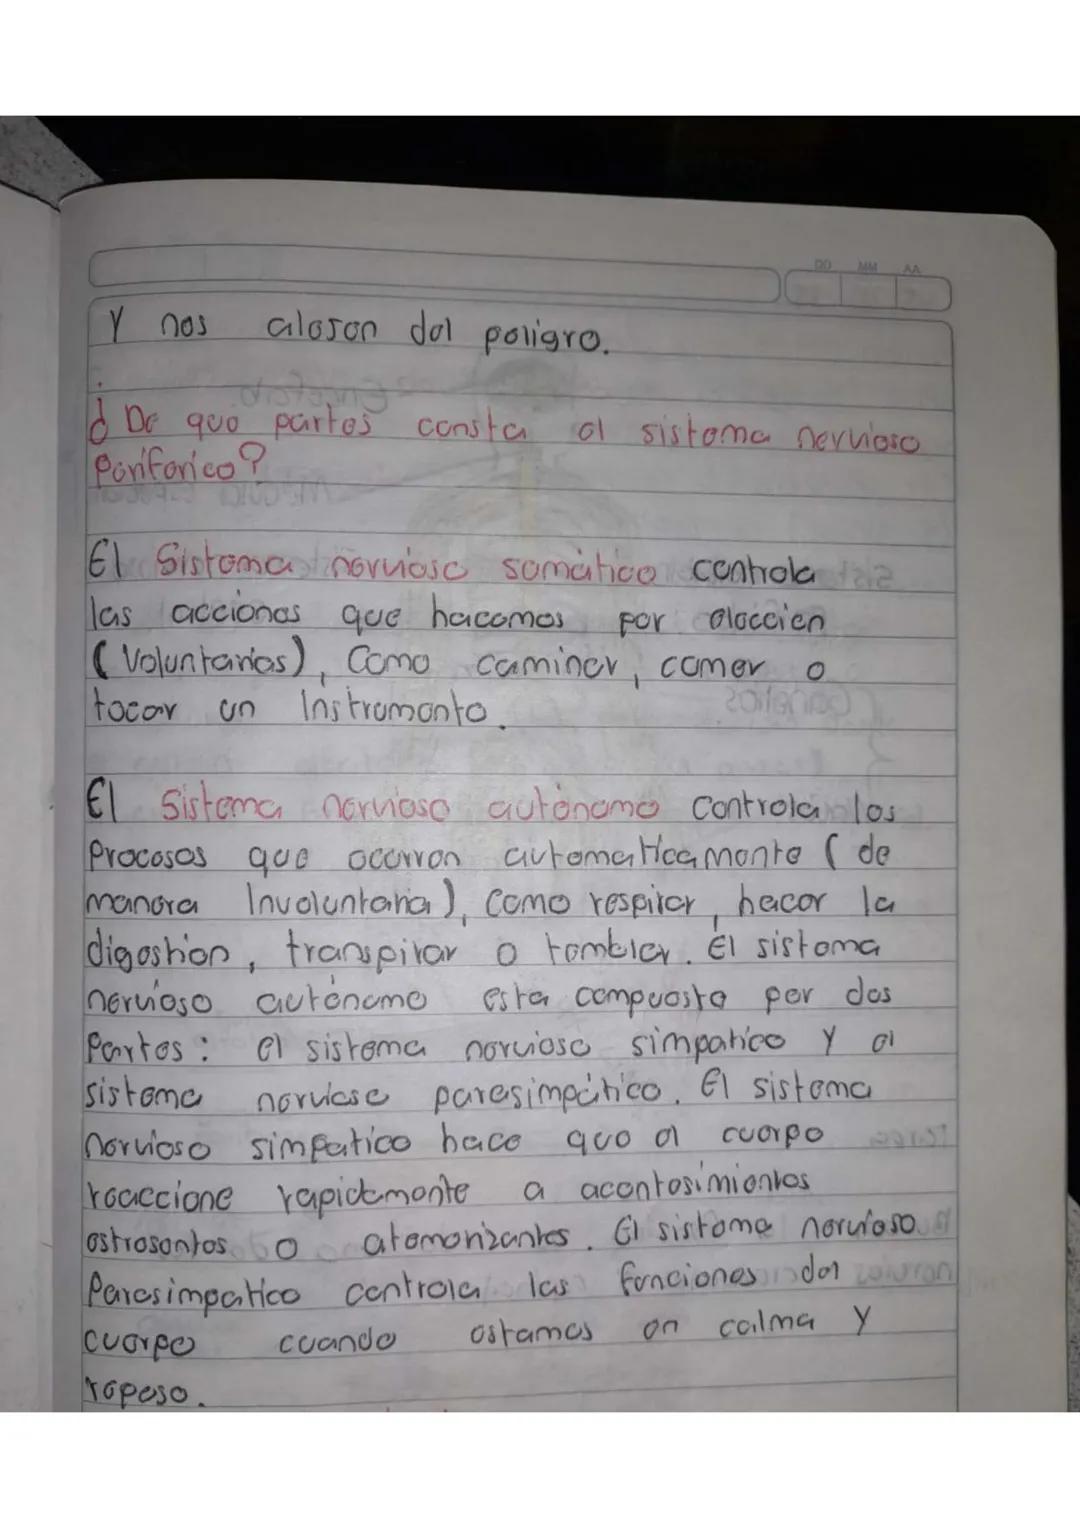 DD MM AA
Y nos alejan del peligro.
¿De que partes consta el sistema nervioso
Periferico?
El Sistema nervioso somático controla
las acciones que hacemos por elección
(Voluntarias), Como caminar, comer o
tocar un Instrumento.
El Sistema nervioso autónomo Controla los
Procesos que ocurren automaticamente (de
manera Involuntaria), Como respirar, hacer la
digestion, transpirar o temblar. El sistema
nervioso autónomo esta compuesto por dos
Partes: el sistema nervioso simpatico Y el
sistema nervioso parasimpático. El sistema
nervioso simpatico hace que el cuerpo
reaccione rapidamente a acontesimientos
estresantes o atemorizantes. El sistema nervioso
Parasimpatico controla las funciones del
cuerpo cuando estamos en calma Y
reposo.